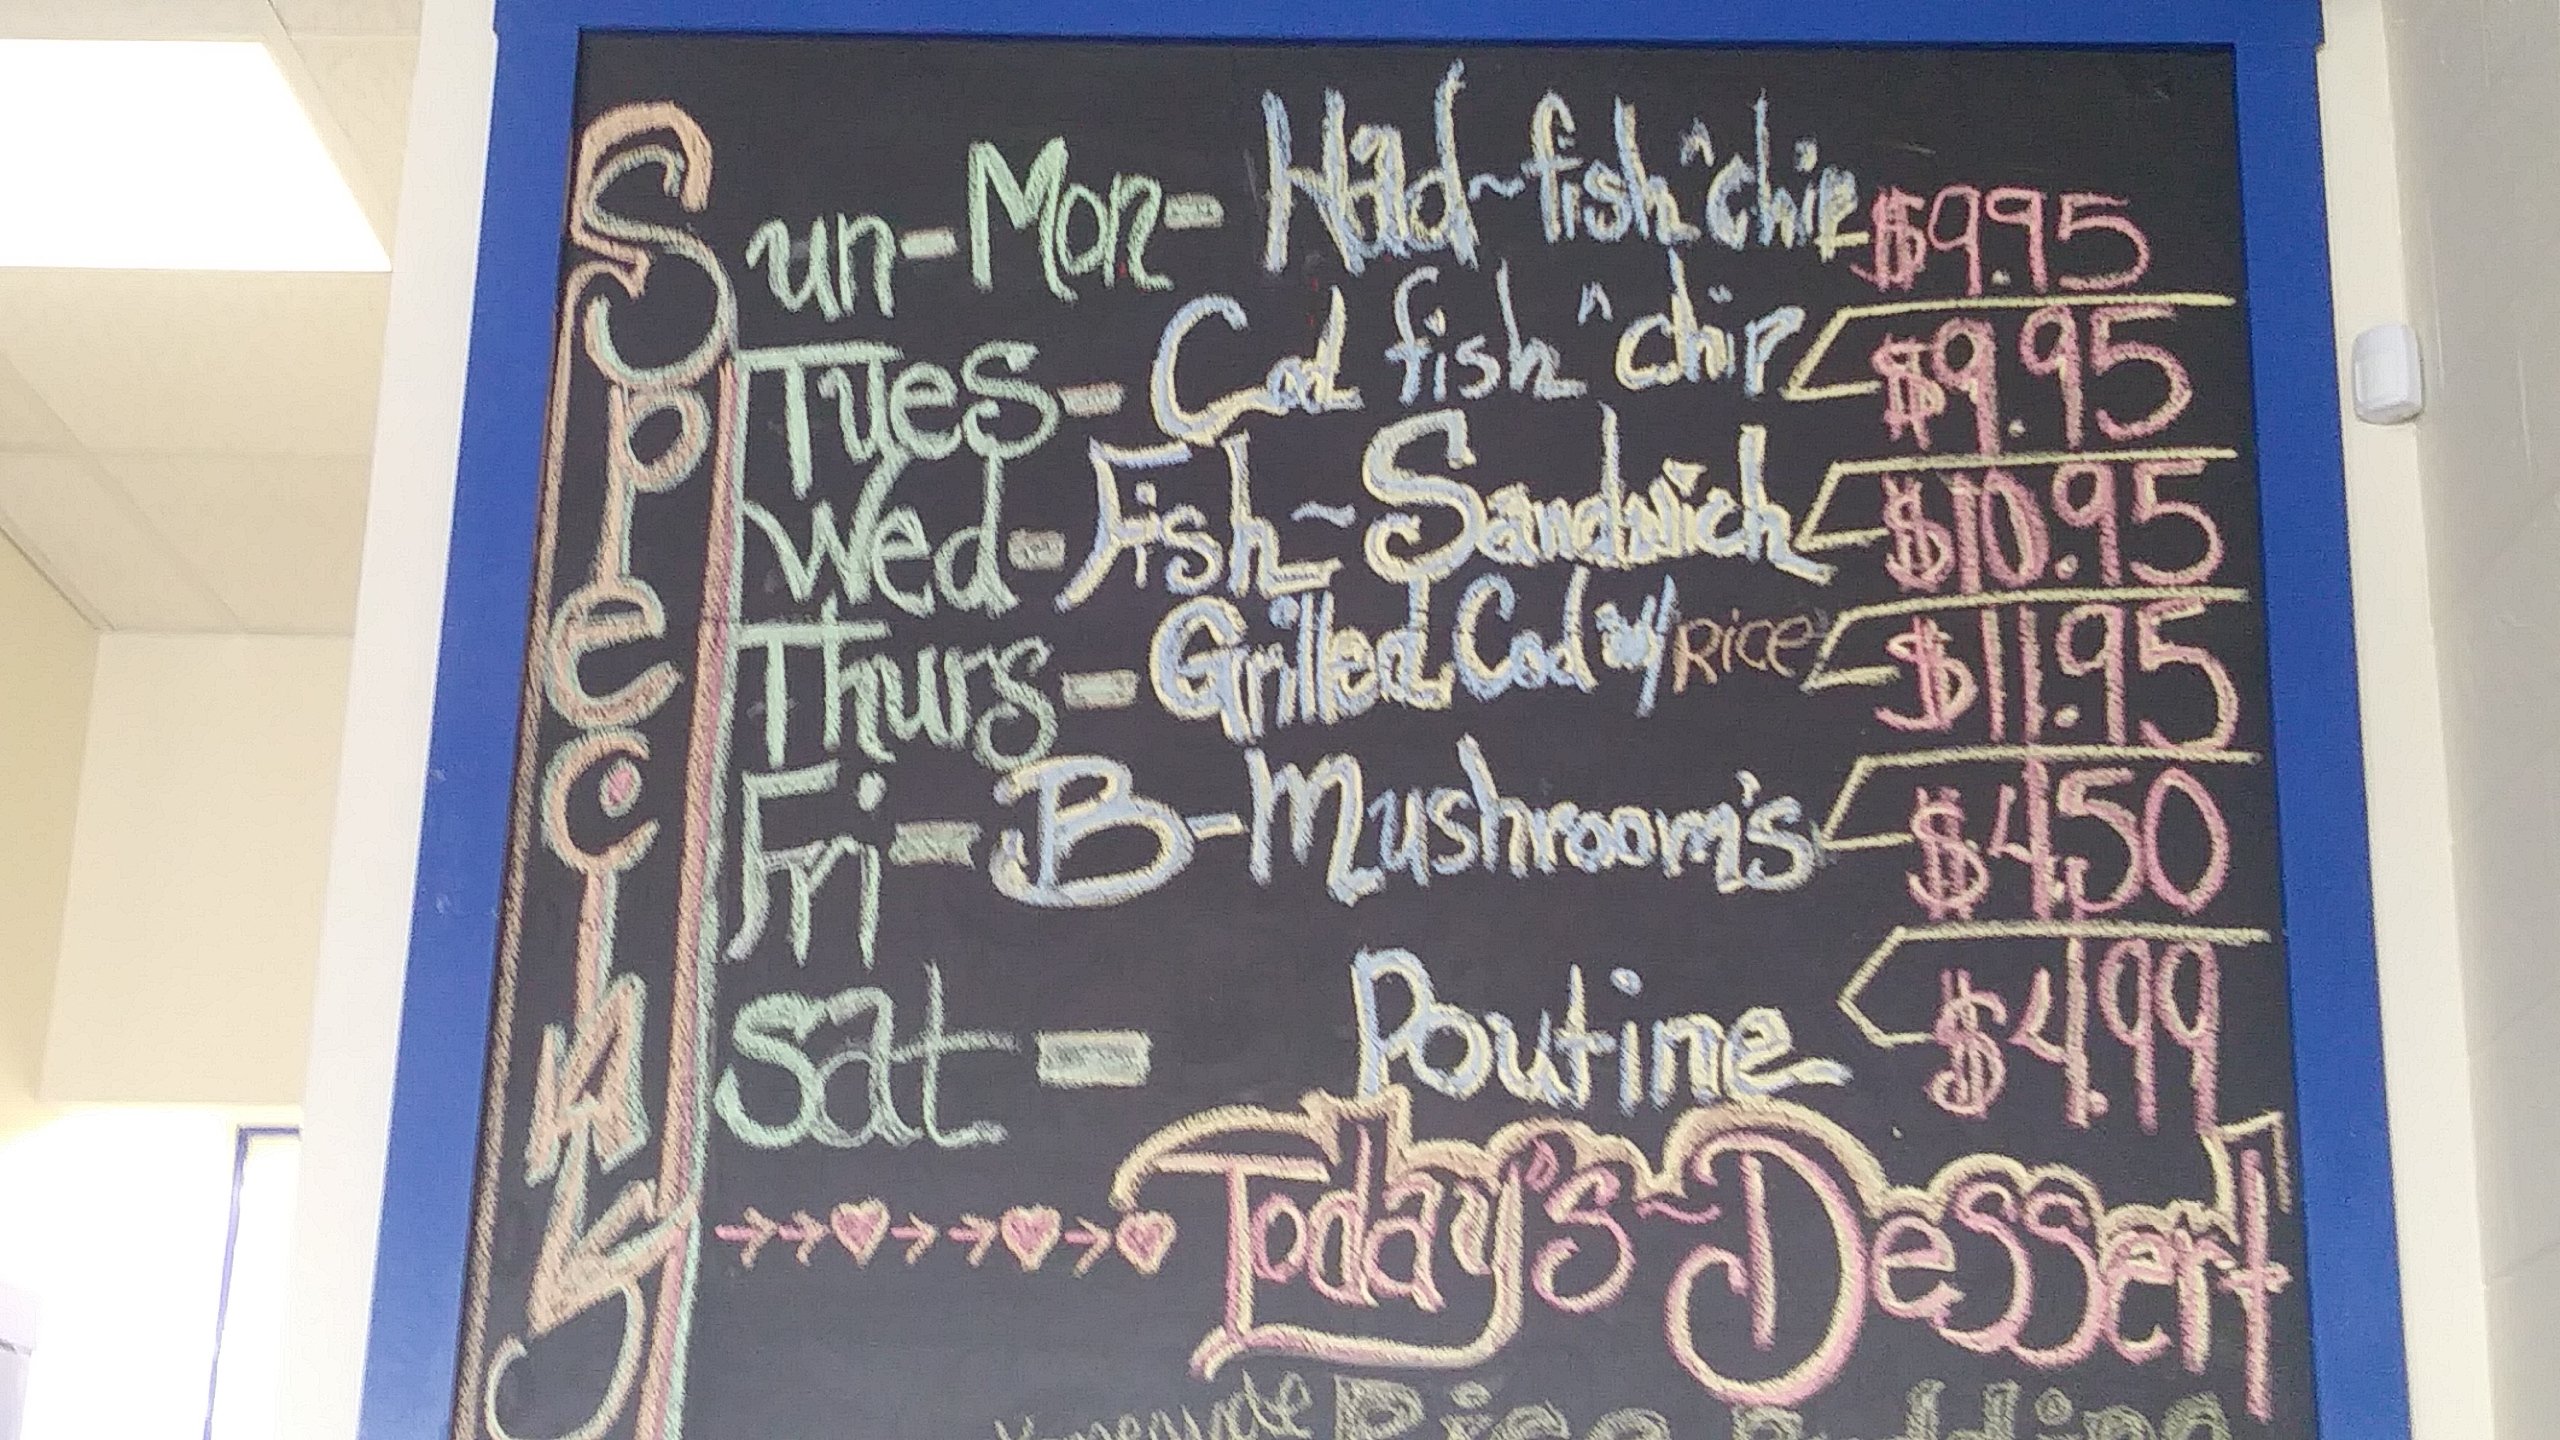 Specials
Sun-Mon- Had~fish "n" chip $9.95
Tues- Cod fish "n" chip $9.95
Wed- Fish~Sandwich $10.95
Thurs- Grilled Cod w/ Rice $11.95
Fri- B-Mushroom's $4.50
Sat - Poutine $4.99
Today's~Dessert
Homemade Rice Pudding